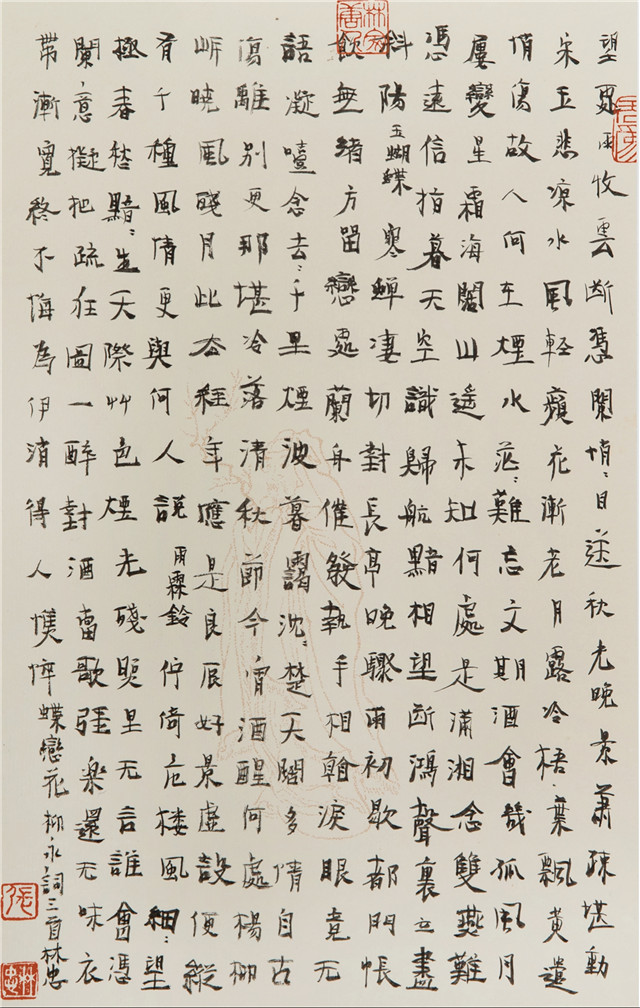 望處雨收雲断憑闌悄〻目送秋光晚景蕭疎堪動
宋玉悲凉水風軽蘋花漸老月露冷梧葉飄黄遣
情傷故人何在煙水茫〻難忘文期酒會幾孤風月
屢變星霜海闊山遥未知何處是瀟湘念雙燕難
憑遠信指暮天空識歸航黯相望断鴻聲裏立盡
斜陽 玉蝴蝶 寒蟬凄切對長亭晚驟雨初歇都門帳
飲無緒方留戀處蘭舟催發執手相看淚眼竟无
語凝噎念去〻千里煙波暮靄沈〻楚天闊多情自古
傷離別更那堪冷落清秋節今宵酒醒何處楊柳
岍曉風殘月此去経年應是良辰好景虚設便縱
有千種風情更與何人説 雨霖鈴 佇倚危楼風細〻望
極春愁黯〻生天際艸色煙光殘照里无言誰會憑
闌意擬把疏狂圖一醉對酒當歌强楽還无味衣
帶漸寬終不悔為伊消得人憔悴 蝶戀花 柳永詞三首林忠